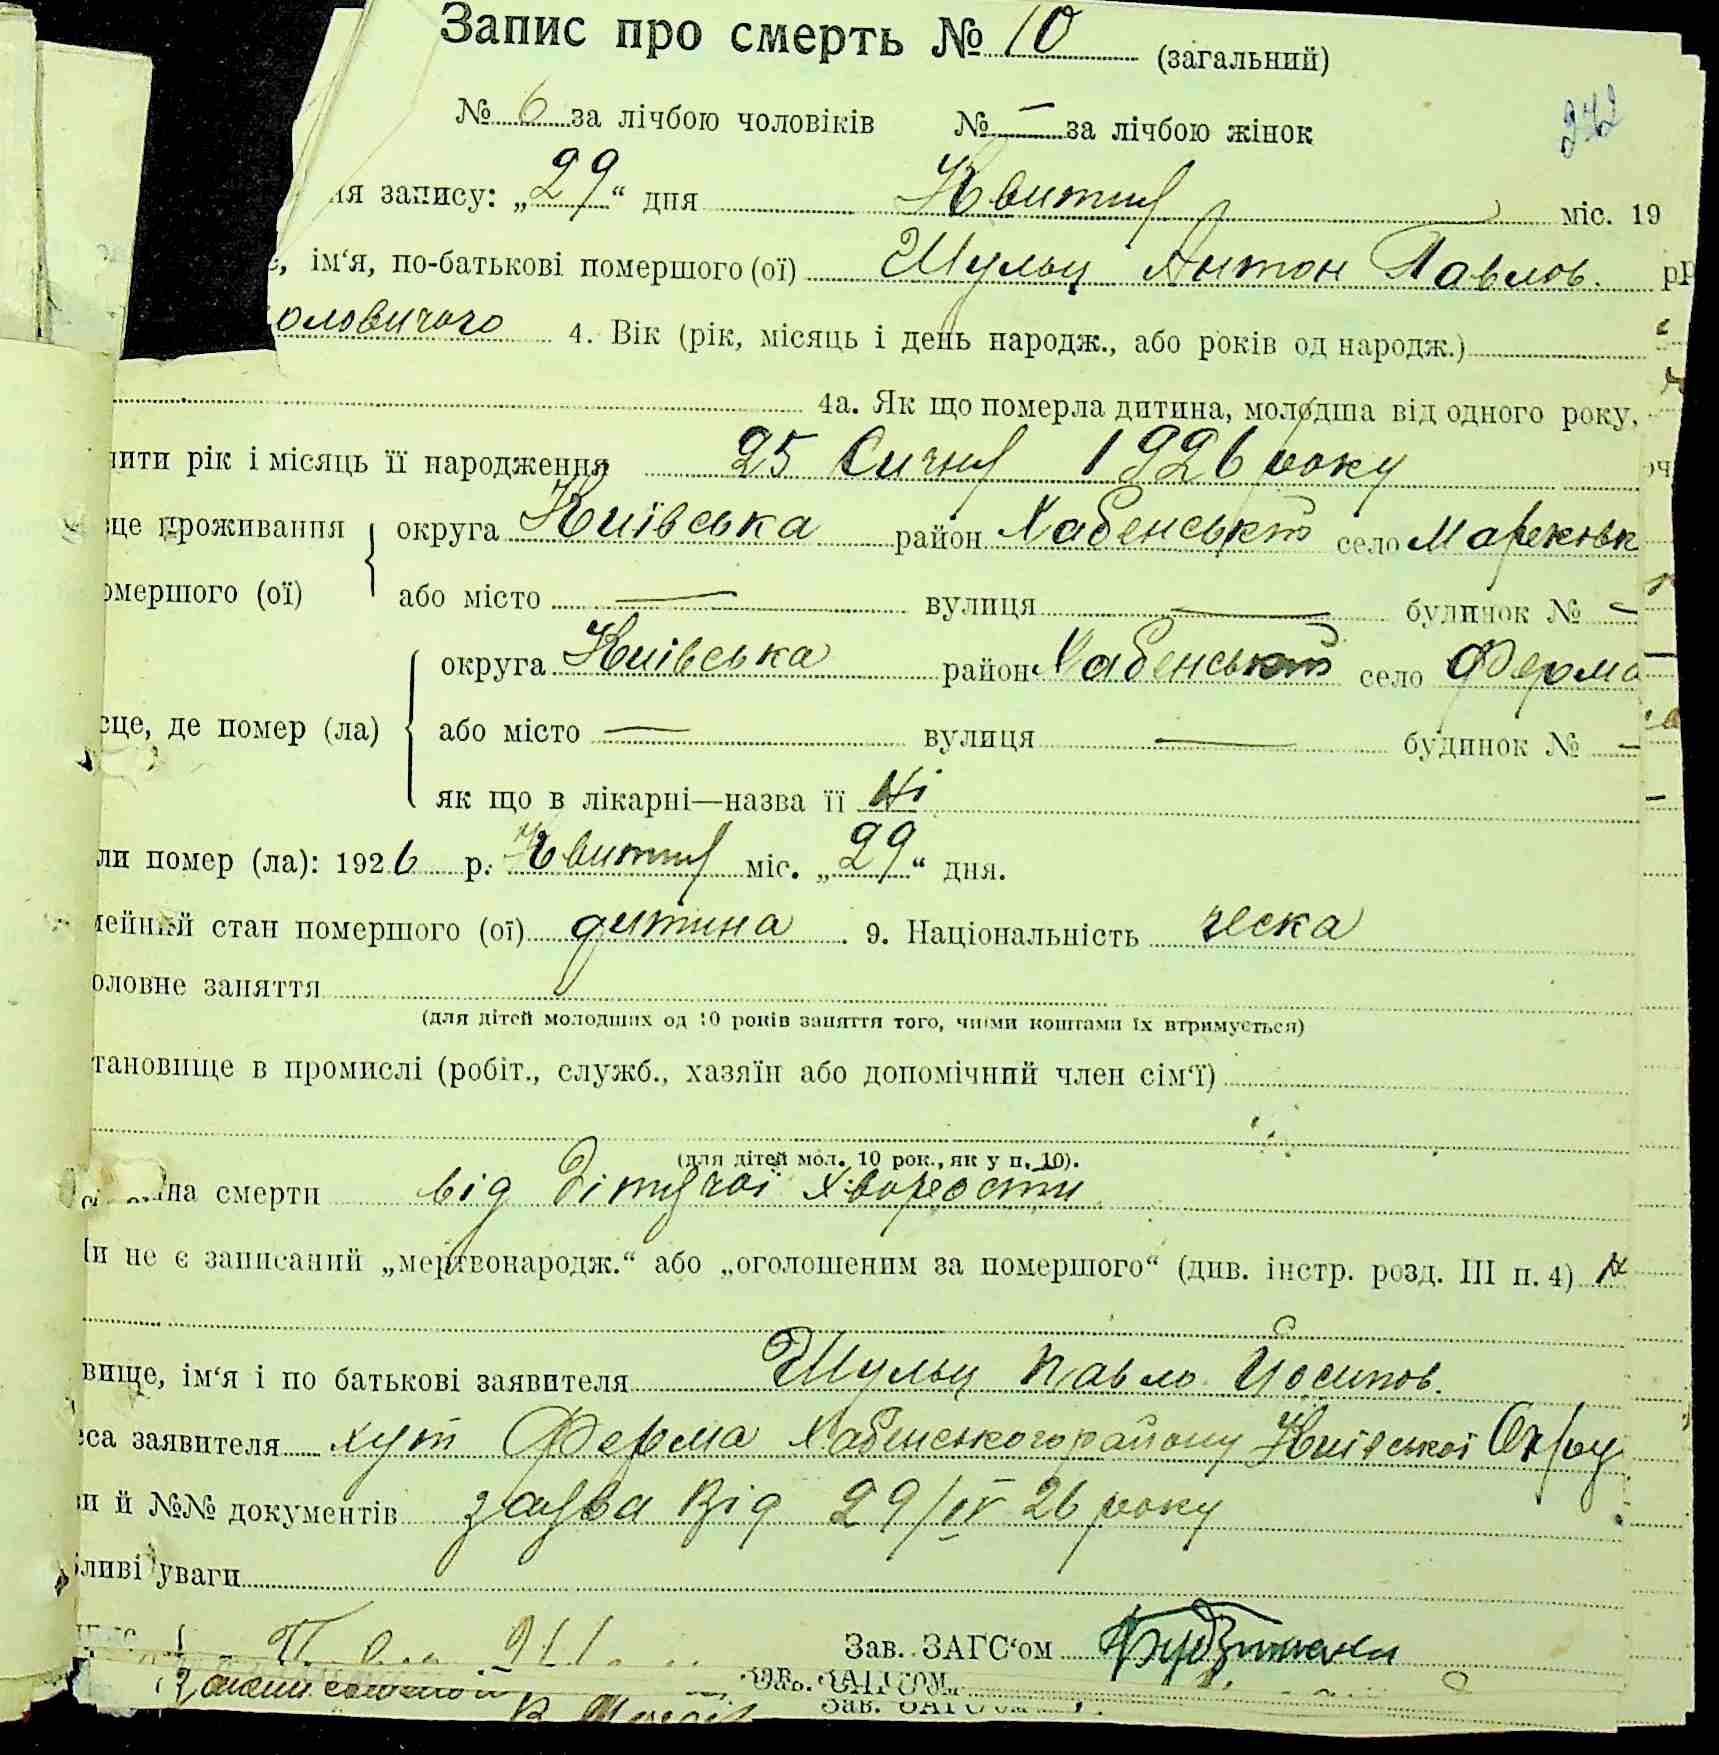 Запис про смерть № 10 (загальний)
242
№ 6 за лічбою чоловіків № — за лічбою жінок
ня запису: „29“ дня Квитня міс. 19
, ім‘я, по-батькові помершого (ої) Шульц Антон Павлов.
оловичого 4. Вік (рік, місяць і день народж., або років од народж.)
4а. Як що померла дитина, молодша від одного року,
чити рік і місяць її народження 25 Сичня 1926 року
сце проживання округа Київська район Хабенський село
омершого (ої) або місто — вулиця — будинок № —
округа Київська район Хабенський село Ферма
сце, де помер (ла) або місто — вулиця — будинок № —
як що в лікарні—назва її Ні
ли помер (ла): 1926 р. Квитня міс. „29“ дня.
мейний стан помершого (ої) дитина 9. Національність ческа
оловне заняття
(для дітей молодших од 10 років заняття того, чиїми коштами їх втримується)
тановище в промислі (робіт., служб., хазяїн або допомічний член сім‘ї)
(для дітей мол. 10 рок., як у п. 10).
на смерти від дітячої хворости
и не є записаний „мертвонародж.“ або „оголошеним за помершого“ (див. інстр. розд. III п. 4)
вище, ім‘я і по батькові заявителя Шульц Павло Йосипов.
еса заявителя хут Ферма Хабенського району Київської Округ
и й №№ документів заява від 29/IV 26 року
ливі уваги
Зав. ЗАГС‘ом
Зав. ЗАГС‘ом
Зав. ЗАГС‘ом